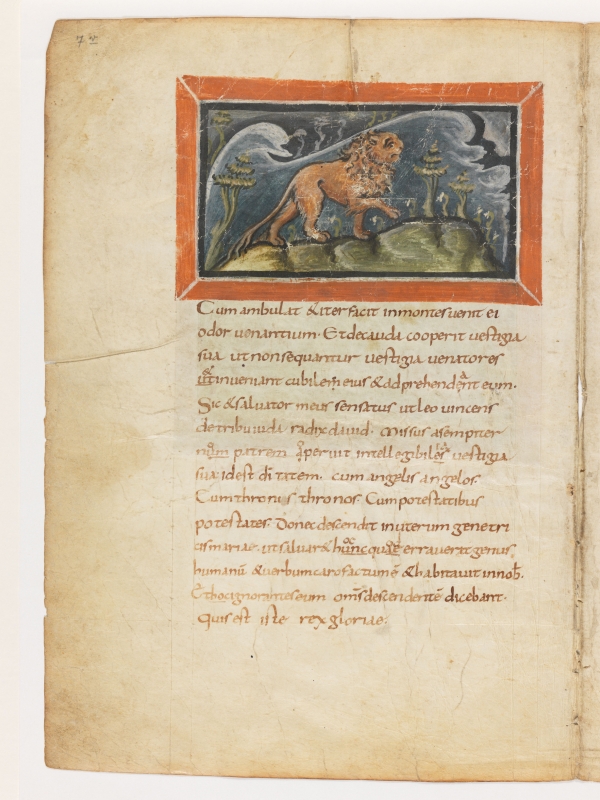 7v
Cum ambulat &iter facit inmontes uenit ei
odor uenantium· Et decauda cooperit uestigia
sua ut nonsequantur uestigia uenatores
inueniant cubilem eius &adprehendant eum·
Sic &saluator meus sensatus ut leo uincens
detribu iuda radix dauid· missus asempiter
patrem uestigia
sua idest tatem· cum angelis angelos
Cum thronis thronos Cum potestatibus
potestates· Donec descendit inuterum genetri
cis mariae· ut saluar& erauerat genus
humanū &uerbum caro factum ē &habitauit innob·
Ethocignorantes eum descendentē dicebant·
Quis est iste rex gloriae·